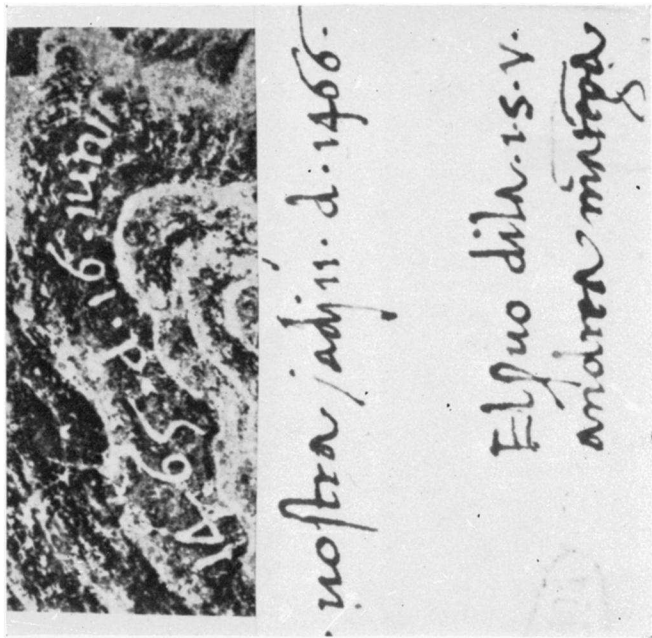 1465.d.16.iuni
noſtra adj 11. d. 1466.
El ſuo dila .i.s.v.
andrea